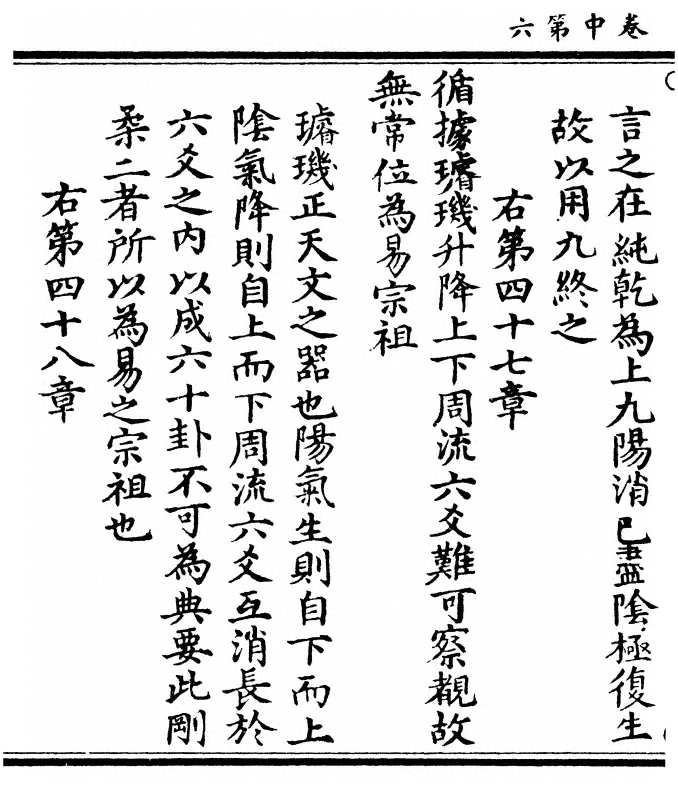 卷中第六
言之在純乾為上九陽消已盡陰極復生
故以用九終之
右第四十七章
循據璿璣升降上下周流六爻難可察覩故
無常位為易宗祖
璿璣正天文之器也陽氣生則自下而上
陰氣降則自上而下周流六爻互消長於
六爻之内以成六十卦不可為典要此剛
柔二者所以為易之宗祖也
右第四十八章